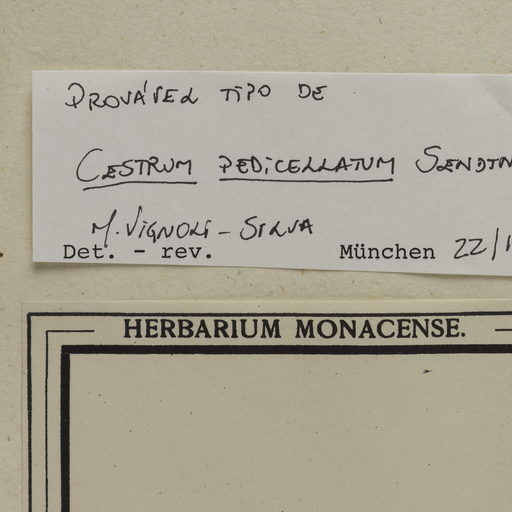 PROVÁVEL TIPO DE
CESTRUM PEDICELLATUM SENDTN
M. VIGNOLI-SILVA
Det. - rev. München 22/1
HERBARIUM MONACENSE.